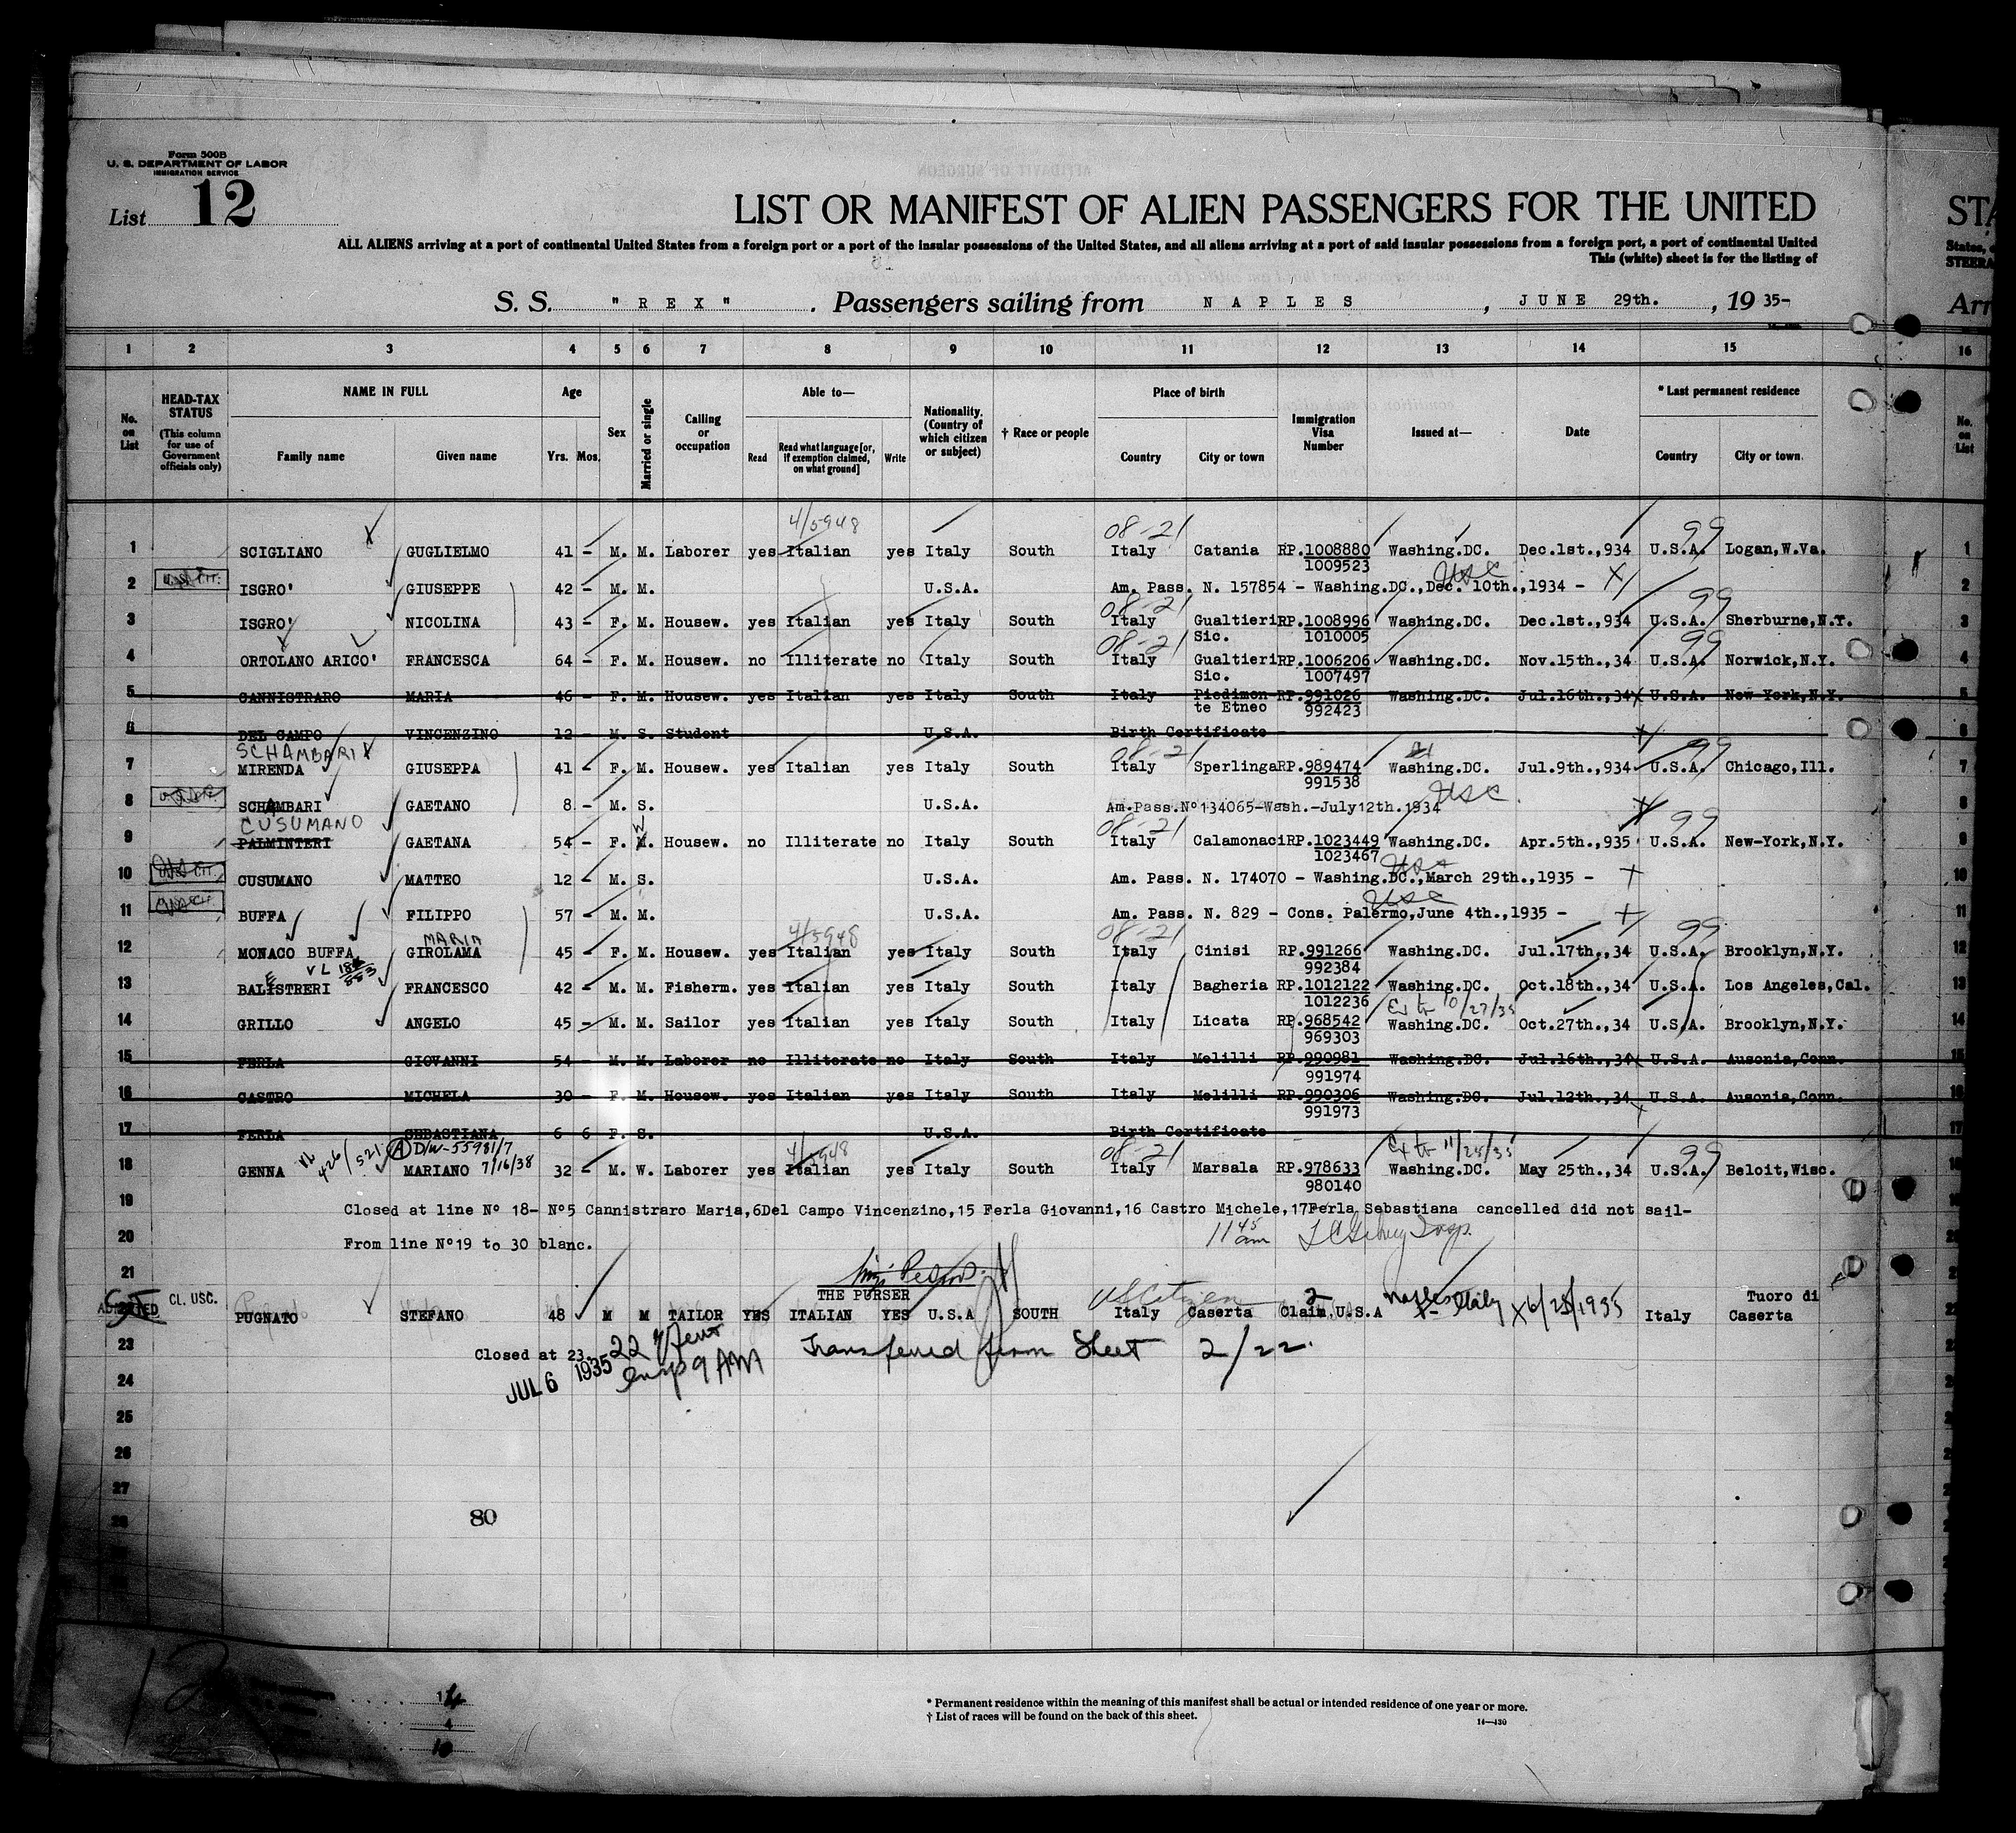 Form 500B
U. S. DEPARTMENT OF LABOR
IMMIGRATION SERVICE
List 12
LIST OR MANIFEST OF ALIEN PASSENGERS FOR THE UNITED
STA
ALL ALIENS arriving at a port of continental United States from a foreign port or a port of the insular possessions of the United States, and all aliens arriving at a port of said insular possessions from a foreign port, a port of continental United
States,
This (white) sheet is for the listing of
STEERA
S. S. "REX". Passengers sailing from NAPLES, JUNE 29th., 19 35-
Arr
1 2 3 4 5 6 7 8 9 10 11 12 13 14 15 16
No. on List
HEAD-TAX STATUS (This column for use of Government officials only)
NAME IN FULL
Family name
Given name
Age
Yrs. Mos.
Sex
Married or single
Calling or occupation
Able to—
Read
Read what language [or, if exemption claimed, on what ground]
Write
Nationality. (Country of which citizen or subject)
† Race or people
Place of birth
Country
City or town
Immigration Visa Number
Issued at—
Date
* Last permanent residence
Country
City or town.
No. on List
4/5948 08-21 99
1 SCIGLIANO GUGLIELMO 41 - M. M. Laborer yes Italian yes Italy South Italy Catania RP.1008880 Washing.DC. Dec.1st.,934 U.S.A. Logan,W.Va. 1
1009523
USC
2 U.S. CIT. ISGRO' GIUSEPPE 42 - M. M. U.S.A. Am. Pass. N. 157854 - Washing.DC.,Dec. 10th.,1934 - 2
08-21 99
3 ISGRO' NICOLINA 43 - F. M. Housew. yes Italian yes Italy South Italy Gualtieri RP.1008996 Washing.DC. Dec.1st.,934 U.S.A. Sherburne,N.Y. 3
Sic. 1010005
08-21 99
4 ORTOLANO ARICO' FRANCESCA 64 - F. M. Housew. no Illiterate no Italy South Italy Gualtieri RP.1006206 Washing.DC. Nov.15th.,34 U.S.A. Norwick,N.Y. 4
Sic. 1007497
5 CANNISTRARO MARIA 46 - F. M. Housew. yes Italian yes Italy South Italy Piedimon- RP.991026 Washing.DC. Jul.16th.,34 U.S.A. New-York,N.Y. 5
te Etneo 992423
6 DEL CAMPO VINCENZINO 12 - M. S. Student U.S.A. Birth Certificate 6
SCHAMBARI 08-21 99
7 MIRENDA GIUSEPPA 41 - F. M. Housew. yes Italian yes Italy South Italy Sperlinga RP.989474 Washing.DC. Jul.9th.,934 U.S.A. Chicago,Ill. 7
991538
USC
8 SCHAMBARI GAETANO 8 - M. S. U.S.A. Am.Pass.Nº134065-Wash.-July12th.1934 8
CUSUMANO W 08-21 99
9 PALMINTERI GAETANA 54 - F. M. Housew. no Illiterate no Italy South Italy Calamonaci RP.1023449 Washing.DC. Apr.5th.,935 U.S.A. New-York,N.Y. 9
1023467
USC
10 CUSUMANO MATTEO 12 - M. S. U.S.A. Am. Pass. N. 174070 - Washing.DC.,March 29th.,1935 - 10
USC
11 BUFFA FILIPPO 57 - M. M. U.S.A. Am. Pass. N. 829 - Cons. Palermo,June 4th.,1935 - 11
MARIA 4/5948 08-21 99
12 MONACO BUFFA GIROLAMA 45 - F. M. Housew. yes Italian yes Italy South Italy Cinisi RP.991266 Washing.DC. Jul.17th.,34 U.S.A. Brooklyn,N.Y. 12
VL 992384
E
13 BALISTRERI FRANCESCO 42 - M. M. Fisherm. yes Italian yes Italy South Italy Bagheria RP.1012122 Washing.DC. Oct.18th.,34 U.S.A. Los Angeles,Cal. 13
1012236 10/27/35
14 GRILLO ANGELO 45 - M. M. Sailor yes Italian yes Italy South Italy Licata RP.968542 Washing.DC. Oct.27th.,34 U.S.A. Brooklyn,N.Y. 14
969303
15 FERLA GIOVANNI 54 - M. M. Laborer no Illiterate no Italy South Italy Melilli RP.990981 Washing.DC. Jul.16th.,34 U.S.A. Ausonia,Conn. 15
991974
16 CASTRO MICHELA 30 - F. M. Housew. yes Italian yes Italy South Italy Melilli RP.990306 Washing.DC. Jul.12th.,34 U.S.A. Ausonia,Conn. 16
991973
17 FERLA SEBASTIANA 6 6 F. S. U.S.A. Birth Certificate 17
VL 426/521 A D/W-55981/7 7/16/38 4/5948 08-21 11/25/35 99
18 GENNA MARIANO 32 - M. W. Laborer yes Italian yes Italy South Italy Marsala RP.978633 Washing.DC. May 25th.,34 U.S.A. Beloit,Wisc. 18
980140
19 Closed at line Nº 18- Nº5 Cannistraro Maria,6Del Campo Vincenzino,15 Ferla Giovanni,16 Castro Michele,17Ferla Sebastiana cancelled did not sail-
11 45 am
20 From line Nº19 to 30 blanc.
21
THE PURSER
US Citizen
ADMITTED CL. USC. PUGNATO STEFANO 48 M M TAILOR YES ITALIAN YES U.S.A SOUTH Italy Caserta Claim.U.S.A Naples Italy 6/25/1935 Italy Tuoro di Caserta 22
23 Closed at 23. 22 Transferred from Sheet 2/22.
JUL 6 1935 9 AM
24
25
26
27
80
* Permanent residence within the meaning of this manifest shall be actual or intended residence of one year or more.
† List of races will be found on the back of this sheet.
14—430
4
10